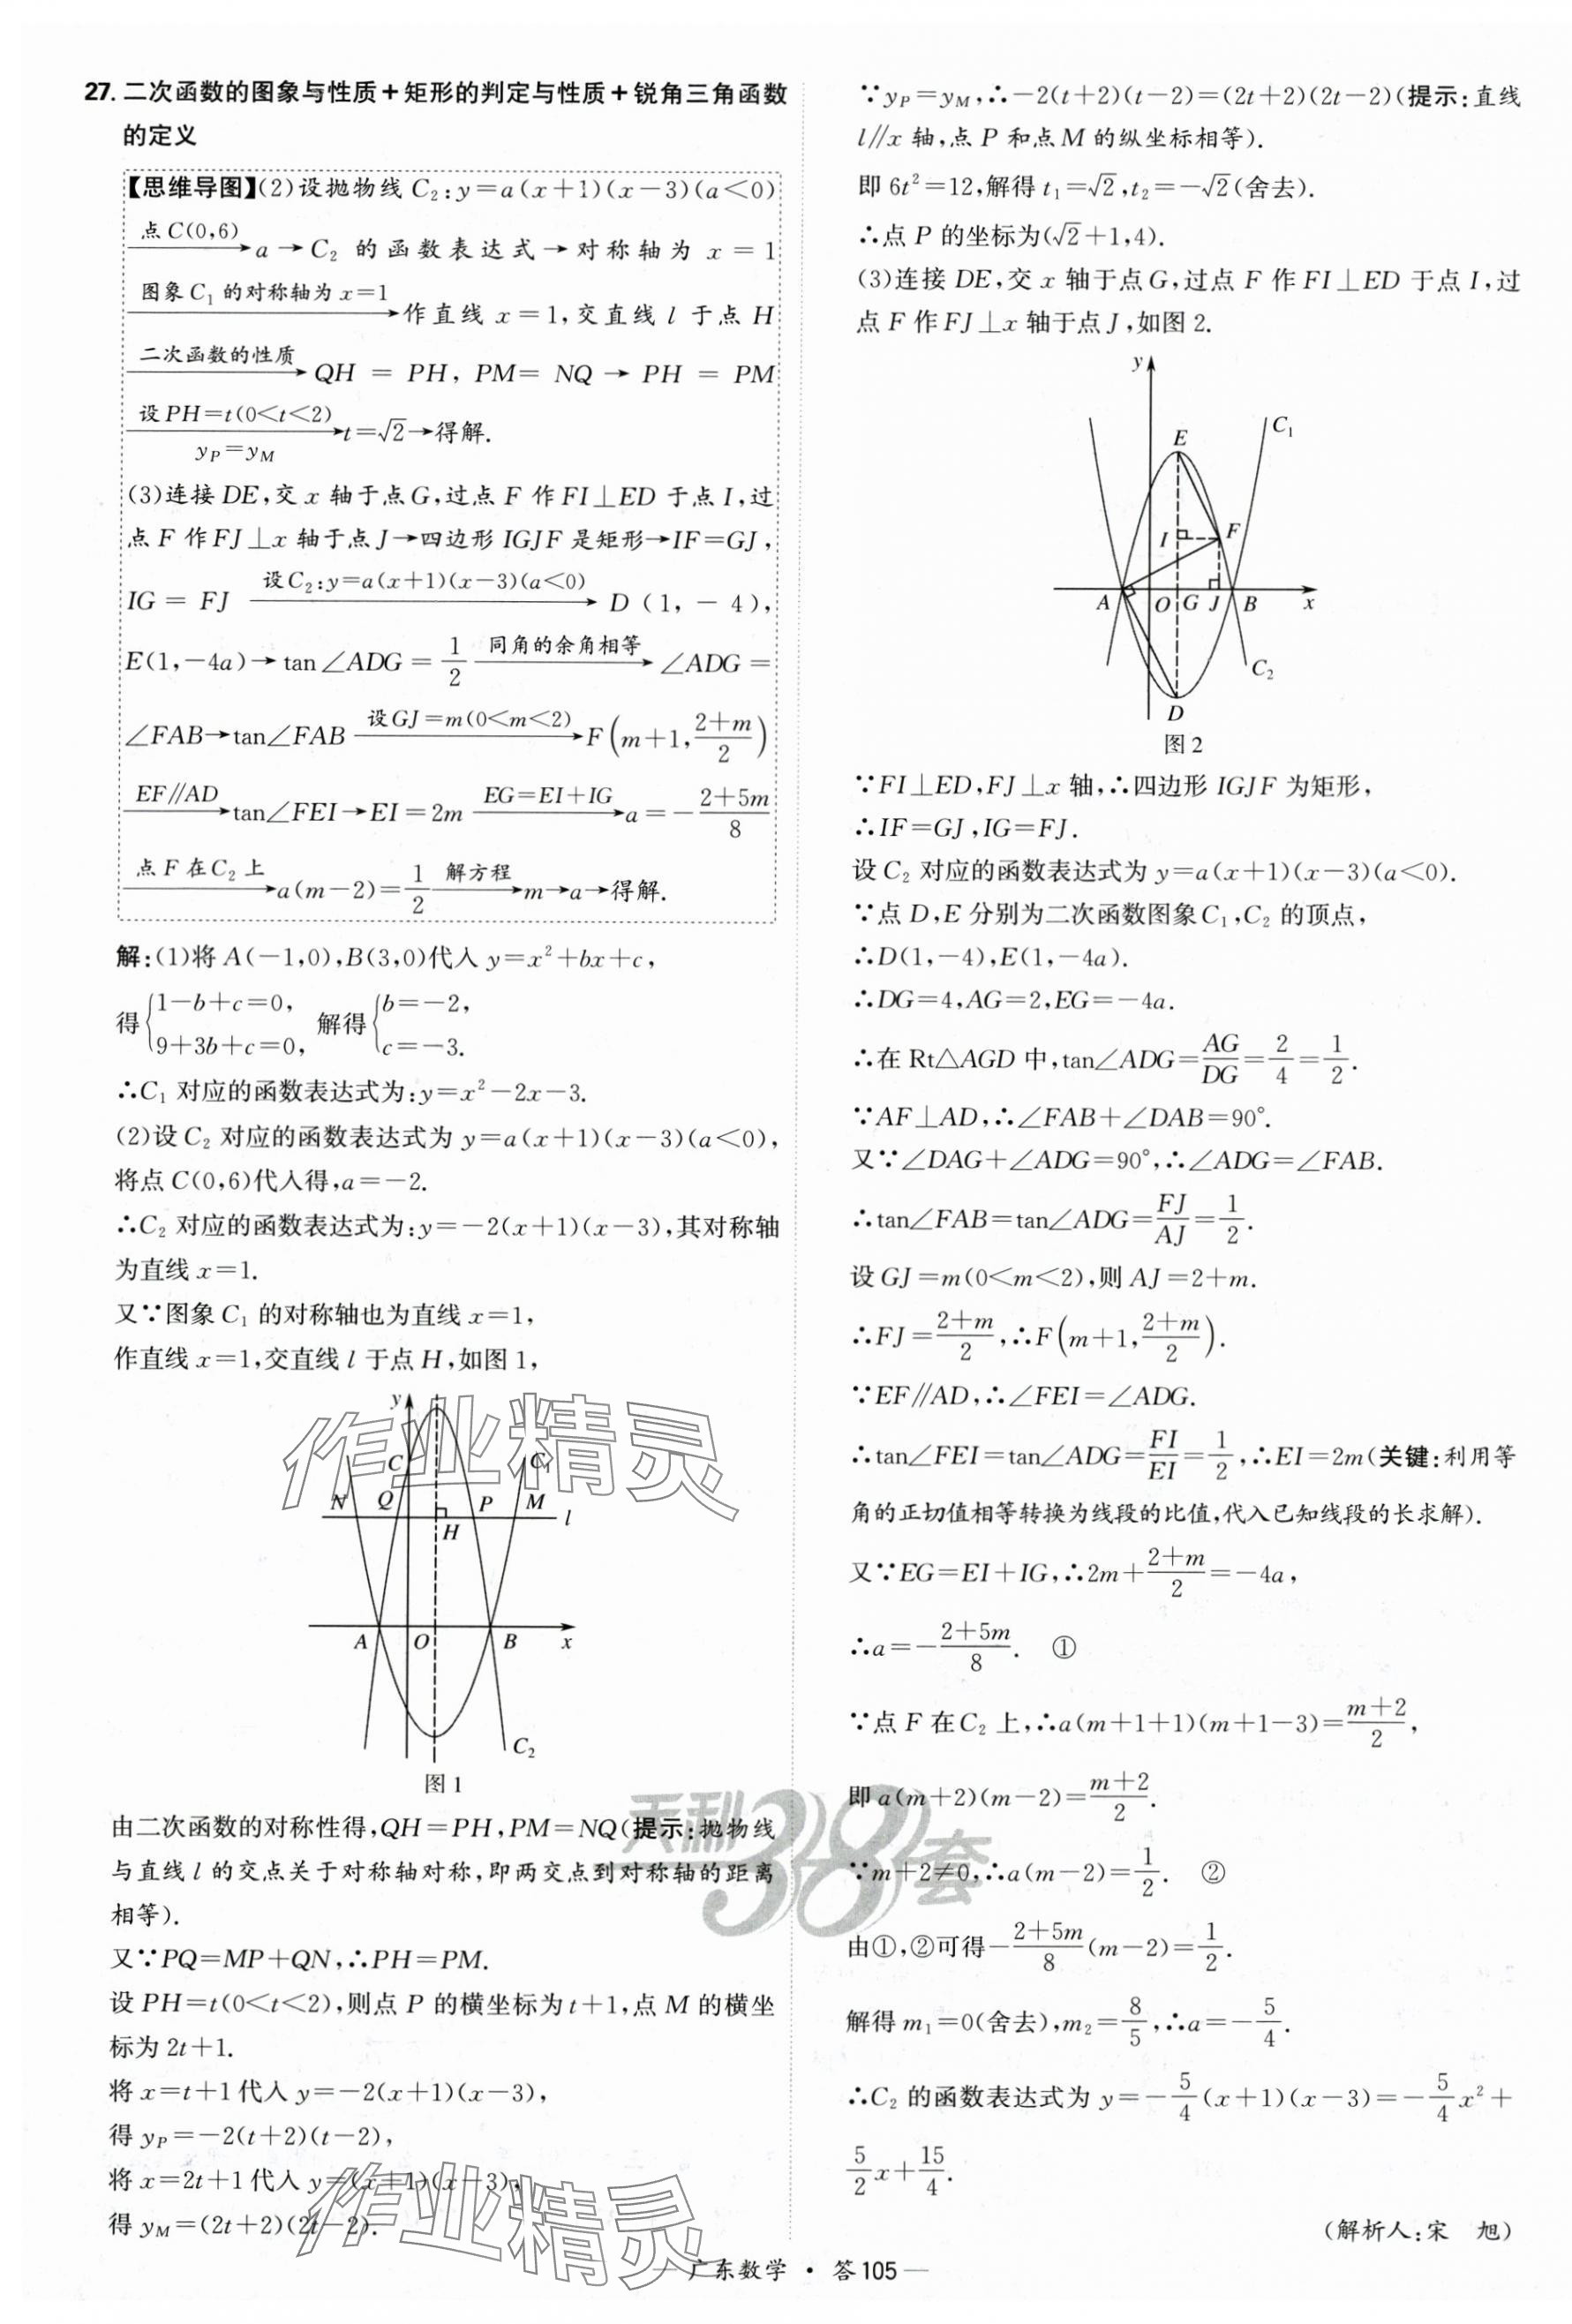 27. 二次函数的图象与性质＋矩形的判定与性质＋锐角三角函数
的定义
【思维导图】(2)设抛物线 C₂:y=a(x+1)(x-3)(a<0)
点C(0,6)
→a→C₂ 的函数表达式→对称轴为 x=1
图象 C₁ 的对称轴为 x=1
→作直线 x=1,交直线 l 于点 H
二次函数的性质
→QH = PH, PM= NQ → PH = PM
设 PH=t(0<t<2)
→t=√2→得解.
y_P=y_M
(3)连接 DE,交 x 轴于点G,过点 F 作 FI⊥ED 于点 I,过
点 F 作 FJ⊥x 轴于点 J→四边形 IGJF 是矩形→IF=GJ,
设C₂:y=a(x+1)(x-3)(a<0)
IG = FJ → D(1,-4),
E(1,-4a)→tan∠ADG=1/2 同角的余角相等→∠ADG=
∠FAB→tan∠FAB 设GJ=m(0<m<2)→F(m+1,(2+m)/2)
EF∥AD→tan∠FEI→EI=2m EG=EI+IG→a=-(2+5m)/8
点 F 在C₂ 上→a(m-2)=1/2 解方程→m→a→得解.
解:(1)将 A(-1,0),B(3,0)代入 y=x²+bx+c,
得{1-b+c=0, 解得{b=-2,
9+3b+c=0, c=-3.
∴C₁ 对应的函数表达式为:y=x²-2x-3.
(2)设C₂ 对应的函数表达式为 y=a(x+1)(x-3)(a<0),
将点 C(0,6)代入得,a=-2.
∴C₂ 对应的函数表达式为:y=-2(x+1)(x-3),其对称轴
为直线 x=1.
又∵图象 C₁ 的对称轴也为直线 x=1,
作直线 x=1,交直线 l 于点 H,如图 1,
y
C
C₁
N Q P M
H
l
A O B x
C₂
图 1
由二次函数的对称性得,QH=PH,PM=NQ(提示:抛物线
与直线 l 的交点关于对称轴对称,即两交点到对称轴的距离
相等).
又∵PQ=MP+QN,∴PH=PM.
设 PH=t(0<t<2),则点 P 的横坐标为 t+1,点 M 的横坐
标为 2t+1.
将 x=t+1代入 y=-2(x+1)(x-3),
得 y_P=-2(t+2)(t-2),
将 x=2t+1代入 y=(x+1)(x-3),
得 y_M=(2t+2)(2t-2).
∵y_P=y_M,∴-2(t+2)(t-2)=(2t+2)(2t-2)(提示:直线
l∥x 轴,点 P 和点 M 的纵坐标相等).
即 6t²=12,解得 t₁=√2,t₂=-√2(舍去).
∴点 P 的坐标为(√2+1,4).
(3)连接 DE,交 x 轴于点G,过点 F 作 FI⊥ED 于点 I,过
点 F 作 FJ⊥x 轴于点 J,如图 2.
y
C₁
E
I F
A O G J B x
C₂
D
图 2
∵FI⊥ED,FJ⊥x 轴,∴四边形 IGJF 为矩形,
∴IF=GJ,IG=FJ.
设 C₂ 对应的函数表达式为 y=a(x+1)(x-3)(a<0).
∵点 D,E 分别为二次函数图象C₁,C₂ 的顶点,
∴D(1,-4),E(1,-4a).
∴DG=4,AG=2,EG=-4a.
∴在 Rt△AGD 中,tan∠ADG=AG/DG=2/4=1/2.
∵AF⊥AD,∴∠FAB+∠DAB=90°.
又∵∠DAG+∠ADG=90°,∴∠ADG=∠FAB.
∴tan∠FAB=tan∠ADG=FJ/AJ=1/2.
设 GJ=m(0<m<2),则 AJ=2+m.
∴FJ=(2+m)/2,∴F(m+1,(2+m)/2).
∵EF∥AD,∴∠FEI=∠ADG.
∴tan∠FEI=tan∠ADG=FI/EI=1/2,∴EI=2m(关键:利用等
角的正切值相等转换为线段的比值,代入已知线段的长求解).
又∵EG=EI+IG,∴2m+(2+m)/2=-4a,
∴a=-(2+5m)/8. ①
∵点 F 在C₂ 上,∴a(m+1+1)(m+1-3)=(m+2)/2,
即 a(m+2)(m-2)=(m+2)/2.
∵m+2≠0,∴a(m-2)=1/2. ②
由①,②可得-(2+5m)/8(m-2)=1/2.
解得 m₁=0(舍去),m₂=8/5,∴a=-5/4.
∴C₂ 的函数表达式为 y=-5/4(x+1)(x-3)=-5/4x²+
5/2x+15/4.
(解析人:宋 旭)
作业精灵
天利38套
作业精灵
— 广东数学 · 答105 —